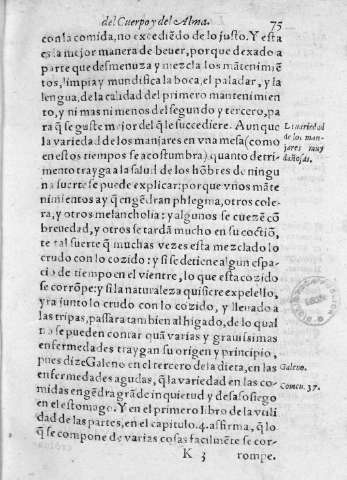 del Cuerpo y del Alma. 75
con la comida, no excediẽdo de lo justo. Y esta
es la mejor manera de beuer, porque dexado a
parte que desmenuza y mezcla los mãtenimiẽ
tos, limpia y mundifica la boca, el paladar, y la
lengua, de la calidad del primero mantenimiẽ
to, y ni mas ni menos del segundo y tercero, pa
ra q̃ se guste mejor del q̃ le succediere. Aunque
la variedad de los manjares en vna mesa (como
en estos tiempos se acostumbra) quanto detri-
mento trayga a la salud de los hõbres de ningu
na suerte se puede explicar: porque vños mãte
nimientos ay q̃ engẽdran phlegma, otros cole
ra, y otros melancholia: y algunos se cuezẽ cõ
breuedad, y otros se tardã mucho en su coctiõ,
te tal suerte q̃ muchas vezes esta mezclado lo
crudo con lo cozido: y si se detiene algun espa-
cio de tiempo en el vientre, lo que esta cozido
se corrõpe: y si la naturaleza quisiere expelello,
yra junto lo crudo con lo cozido, y lleuado a
las tripas, passara tambien al higado, de lo qual
no se pueden contar quã varias y grauissimas
enfermedades traygan su origen y principio,
pues dize Galeno en el tercero de la dieta, en las
enfermedades agudas, q̃ la variedad en las co-
midas engẽdra grãde inquietud y desasosiego
en el estomago. Y en el primero libro de la vtili
dad de las partes, en el capitulo. 4. affirma, q̃ lo
q̃ se compone de varias cosas facilmẽte se cor-
K 3 rompe.
La variedad
de los man-
jares muy
dañosas.
Galeno.
Comen. 37.